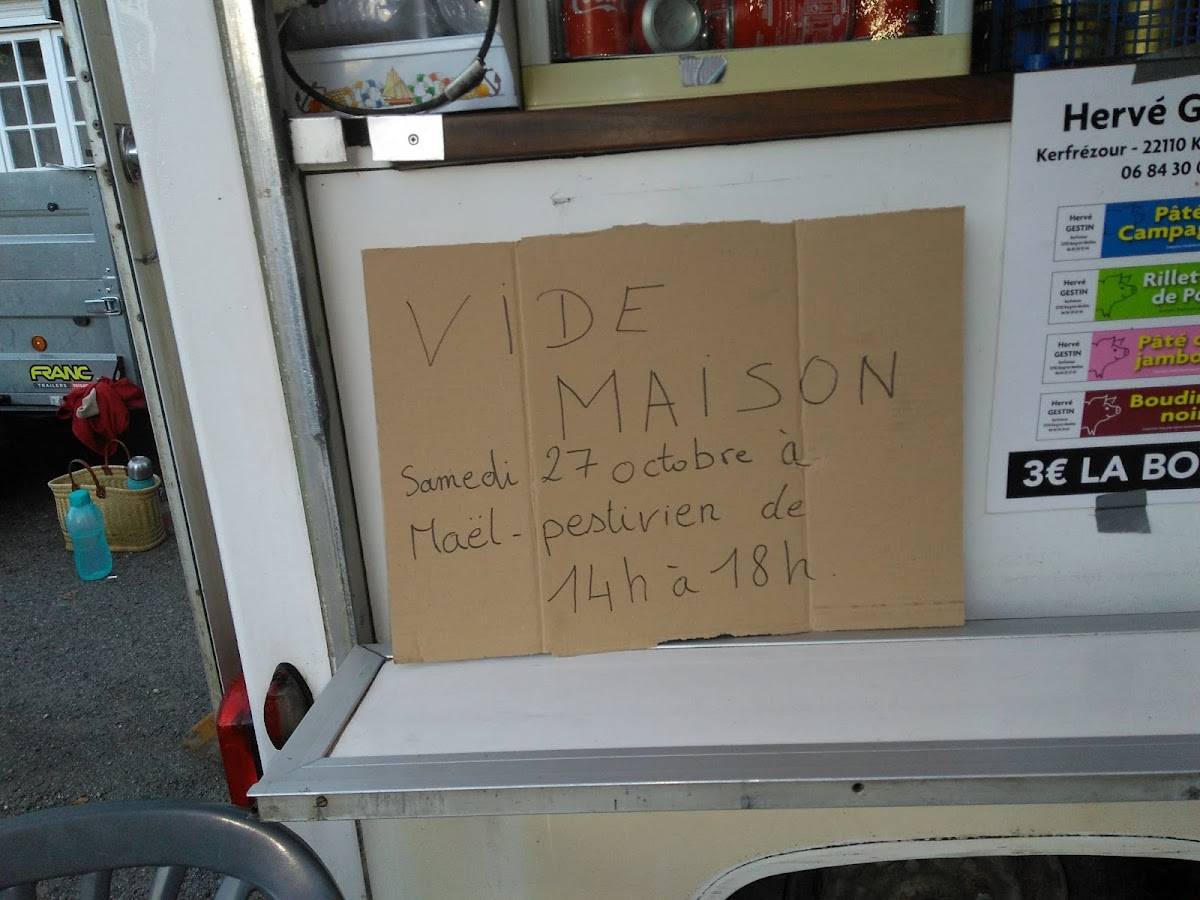 VIDE
MAISON
Samedi 27 octobre à
Maël-pestivien de
14h à 18h.
Hervé G
Kerfrézour - 22110 K
06 84 30 0
Hervé
GESTIN
Pâté
Campag
Hervé
GESTIN
Rillet
de Po
Hervé
GESTIN
Pâté
jambo
Hervé
GESTIN
Boudin
noir
3€ LA BO
FRANC
TRAILERS